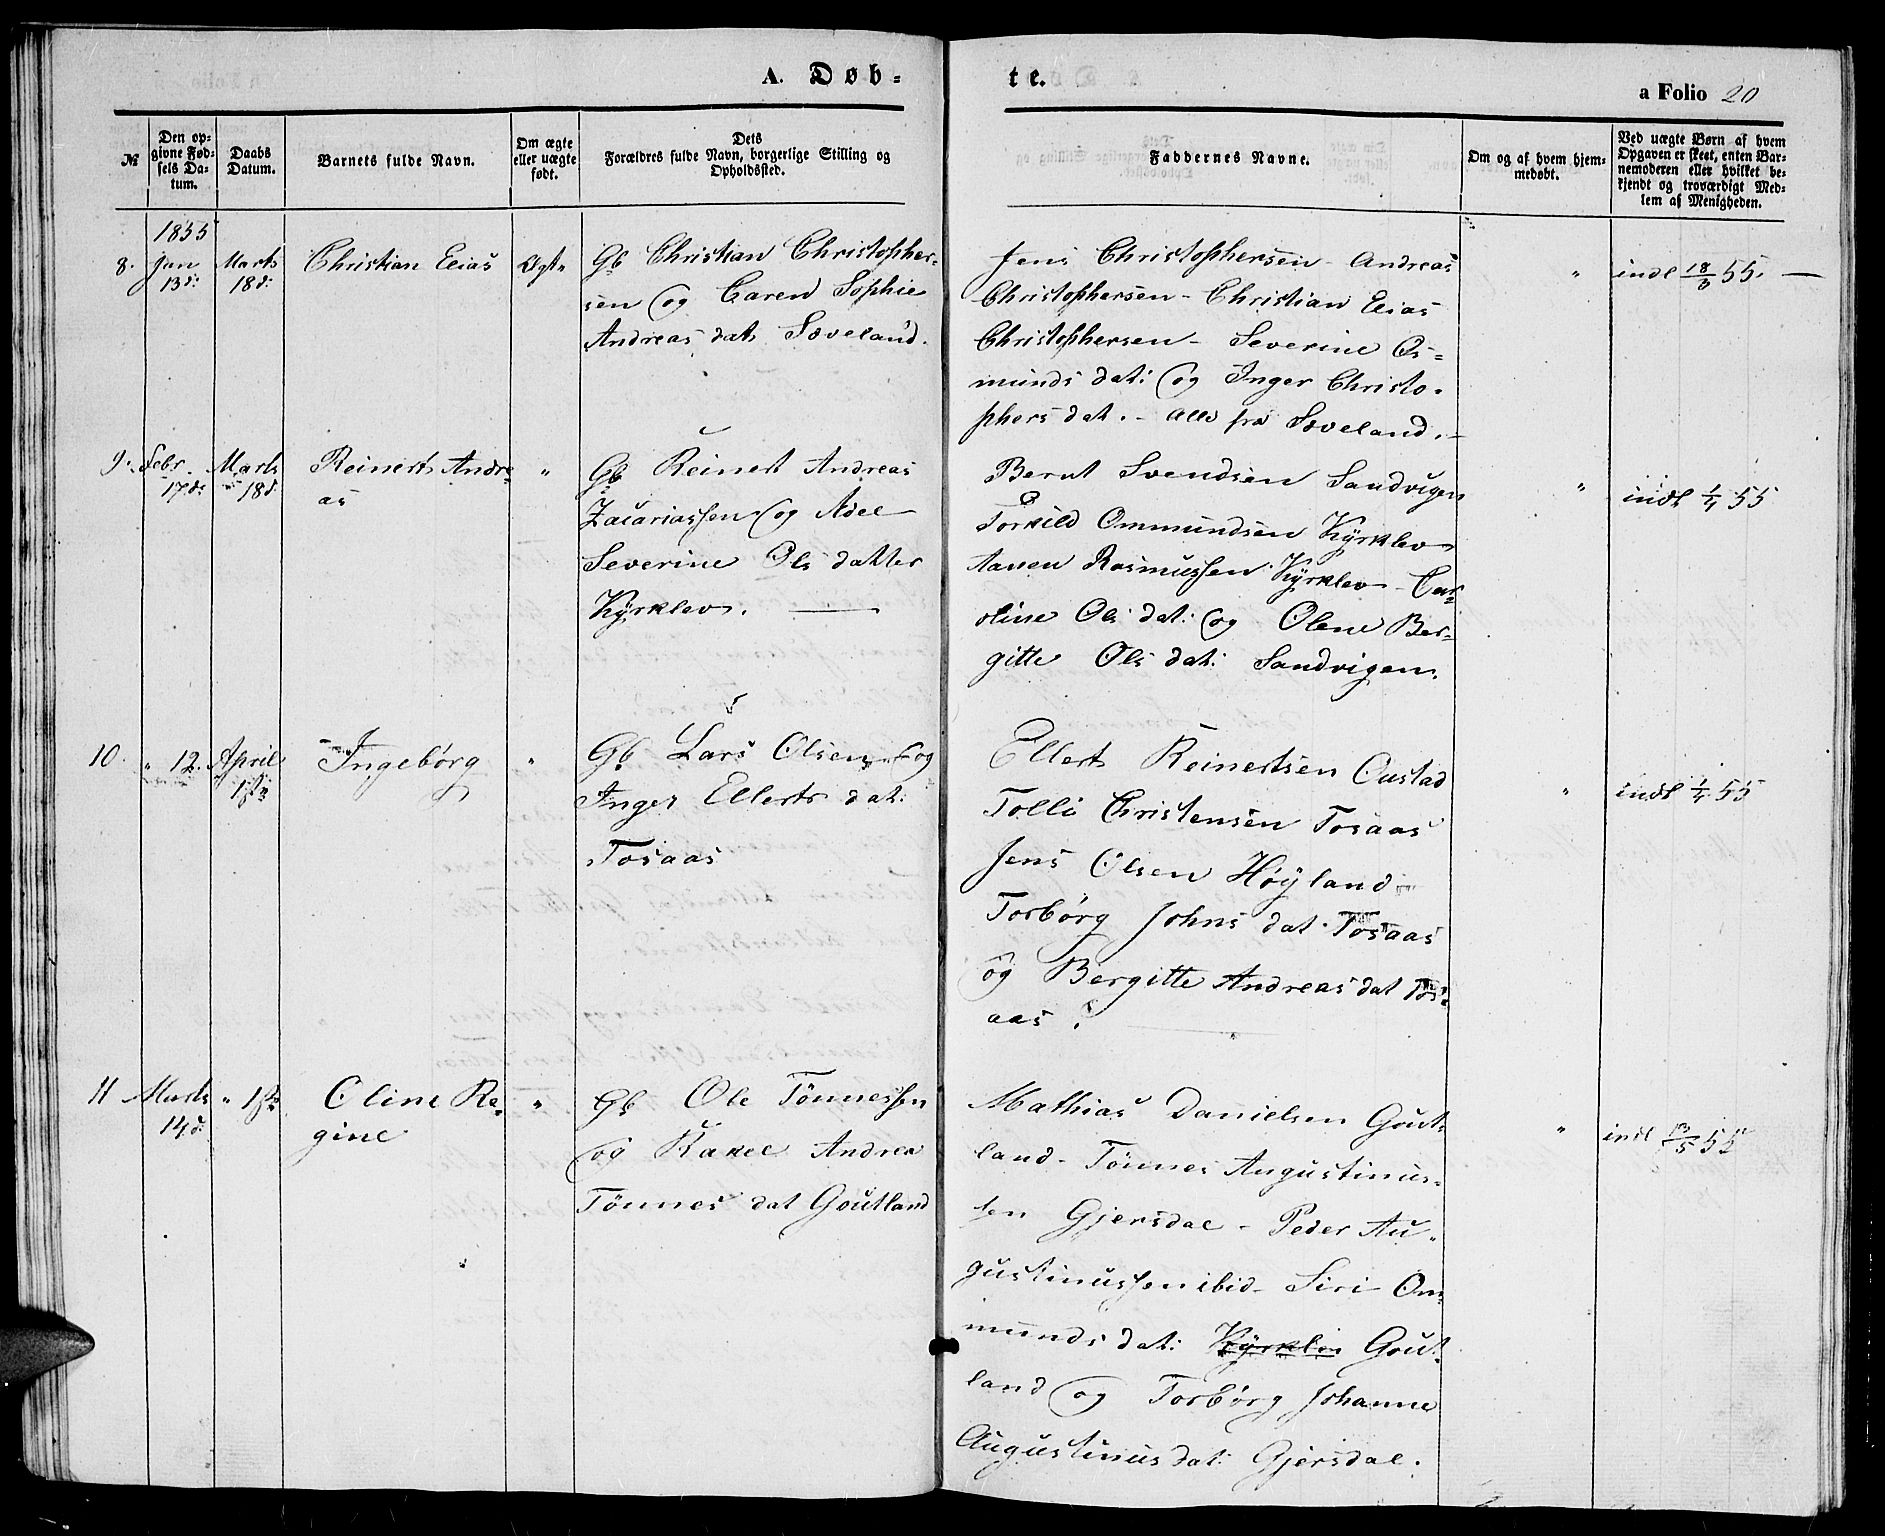 A. Døb-
te.
a Folio 20
№
Den op-
givne Fød-
sels Da-
tum.
Daabs
Datum.
Barnets fulde Navn.
Om ægte
eller uægte
født.
Dets
Forældres fulde Navn, borgerlige Stilling og
Opholdssted.
Faddernes Navne.
Om og af hvem hjem-
medøbt.
Ved uægte Børn af hvem
Opgaven er skeet, enten Bar-
nemoderen eller hvilket be-
kjendt og troværdigt Med-
lem af Menigheden.
1855
8. Jan
13d:
Marts
18d:
Christian Elias
Ægt.
Gb Christian Christopher-
sen og Caren Sophie
Andreas dat. Sæveland.
Jens Christophersen - Andreas
Christophersen - Christian Elias
Christophersen - Severine Os-
munds dat: og Inger Christo-
phers dat. - alle fra Sæveland. -
"
indl 18/3 55. —
9. Febr.
17d:
Marts
18d.
Reinert Andre-
as
"
Gb Reinert Andreas
Zacariassen og Adel
Severine Ols datter
Kÿrklev. —
Bernt Svendsen Sandvigen
Torkild Ommundsen Kÿrklev
Aanen Rasmussen Kÿrklev - Car-
oline Ols dat: og Olene Ber-
gitte Ols dat: Sandvigen.
"
indl 1/4 55
10.
" 12.
April
1ste
Ingebørg
"
Gb Lars Olsen og
Inger Ellerts dat:
Tosaas
Ellert Reinertsen Oustad
Tolli Christensen Tosaas
Jens Olsen Høÿland
Torbørg Johns dat. Tosaas
og Bergitte Andreas dat Tos-
aas.
"
indl 1/4 55
11
Marts
14d:
" 1ste
Oline Re-
gine
"
Gb Ole Tönnessen
og Rakel Andrea
Tönnes dat Goutland
Mathias Danielsen Gout-
land - Tönnes Augustinus-
sen Gjersdal - Peder Au-
gustinussen ibid - Siri Om-
munds dat: Kÿrkli Gout-
land og Torbørg Johanne
Augustinus dat: Gjersdal.
"
indl 13/5 55